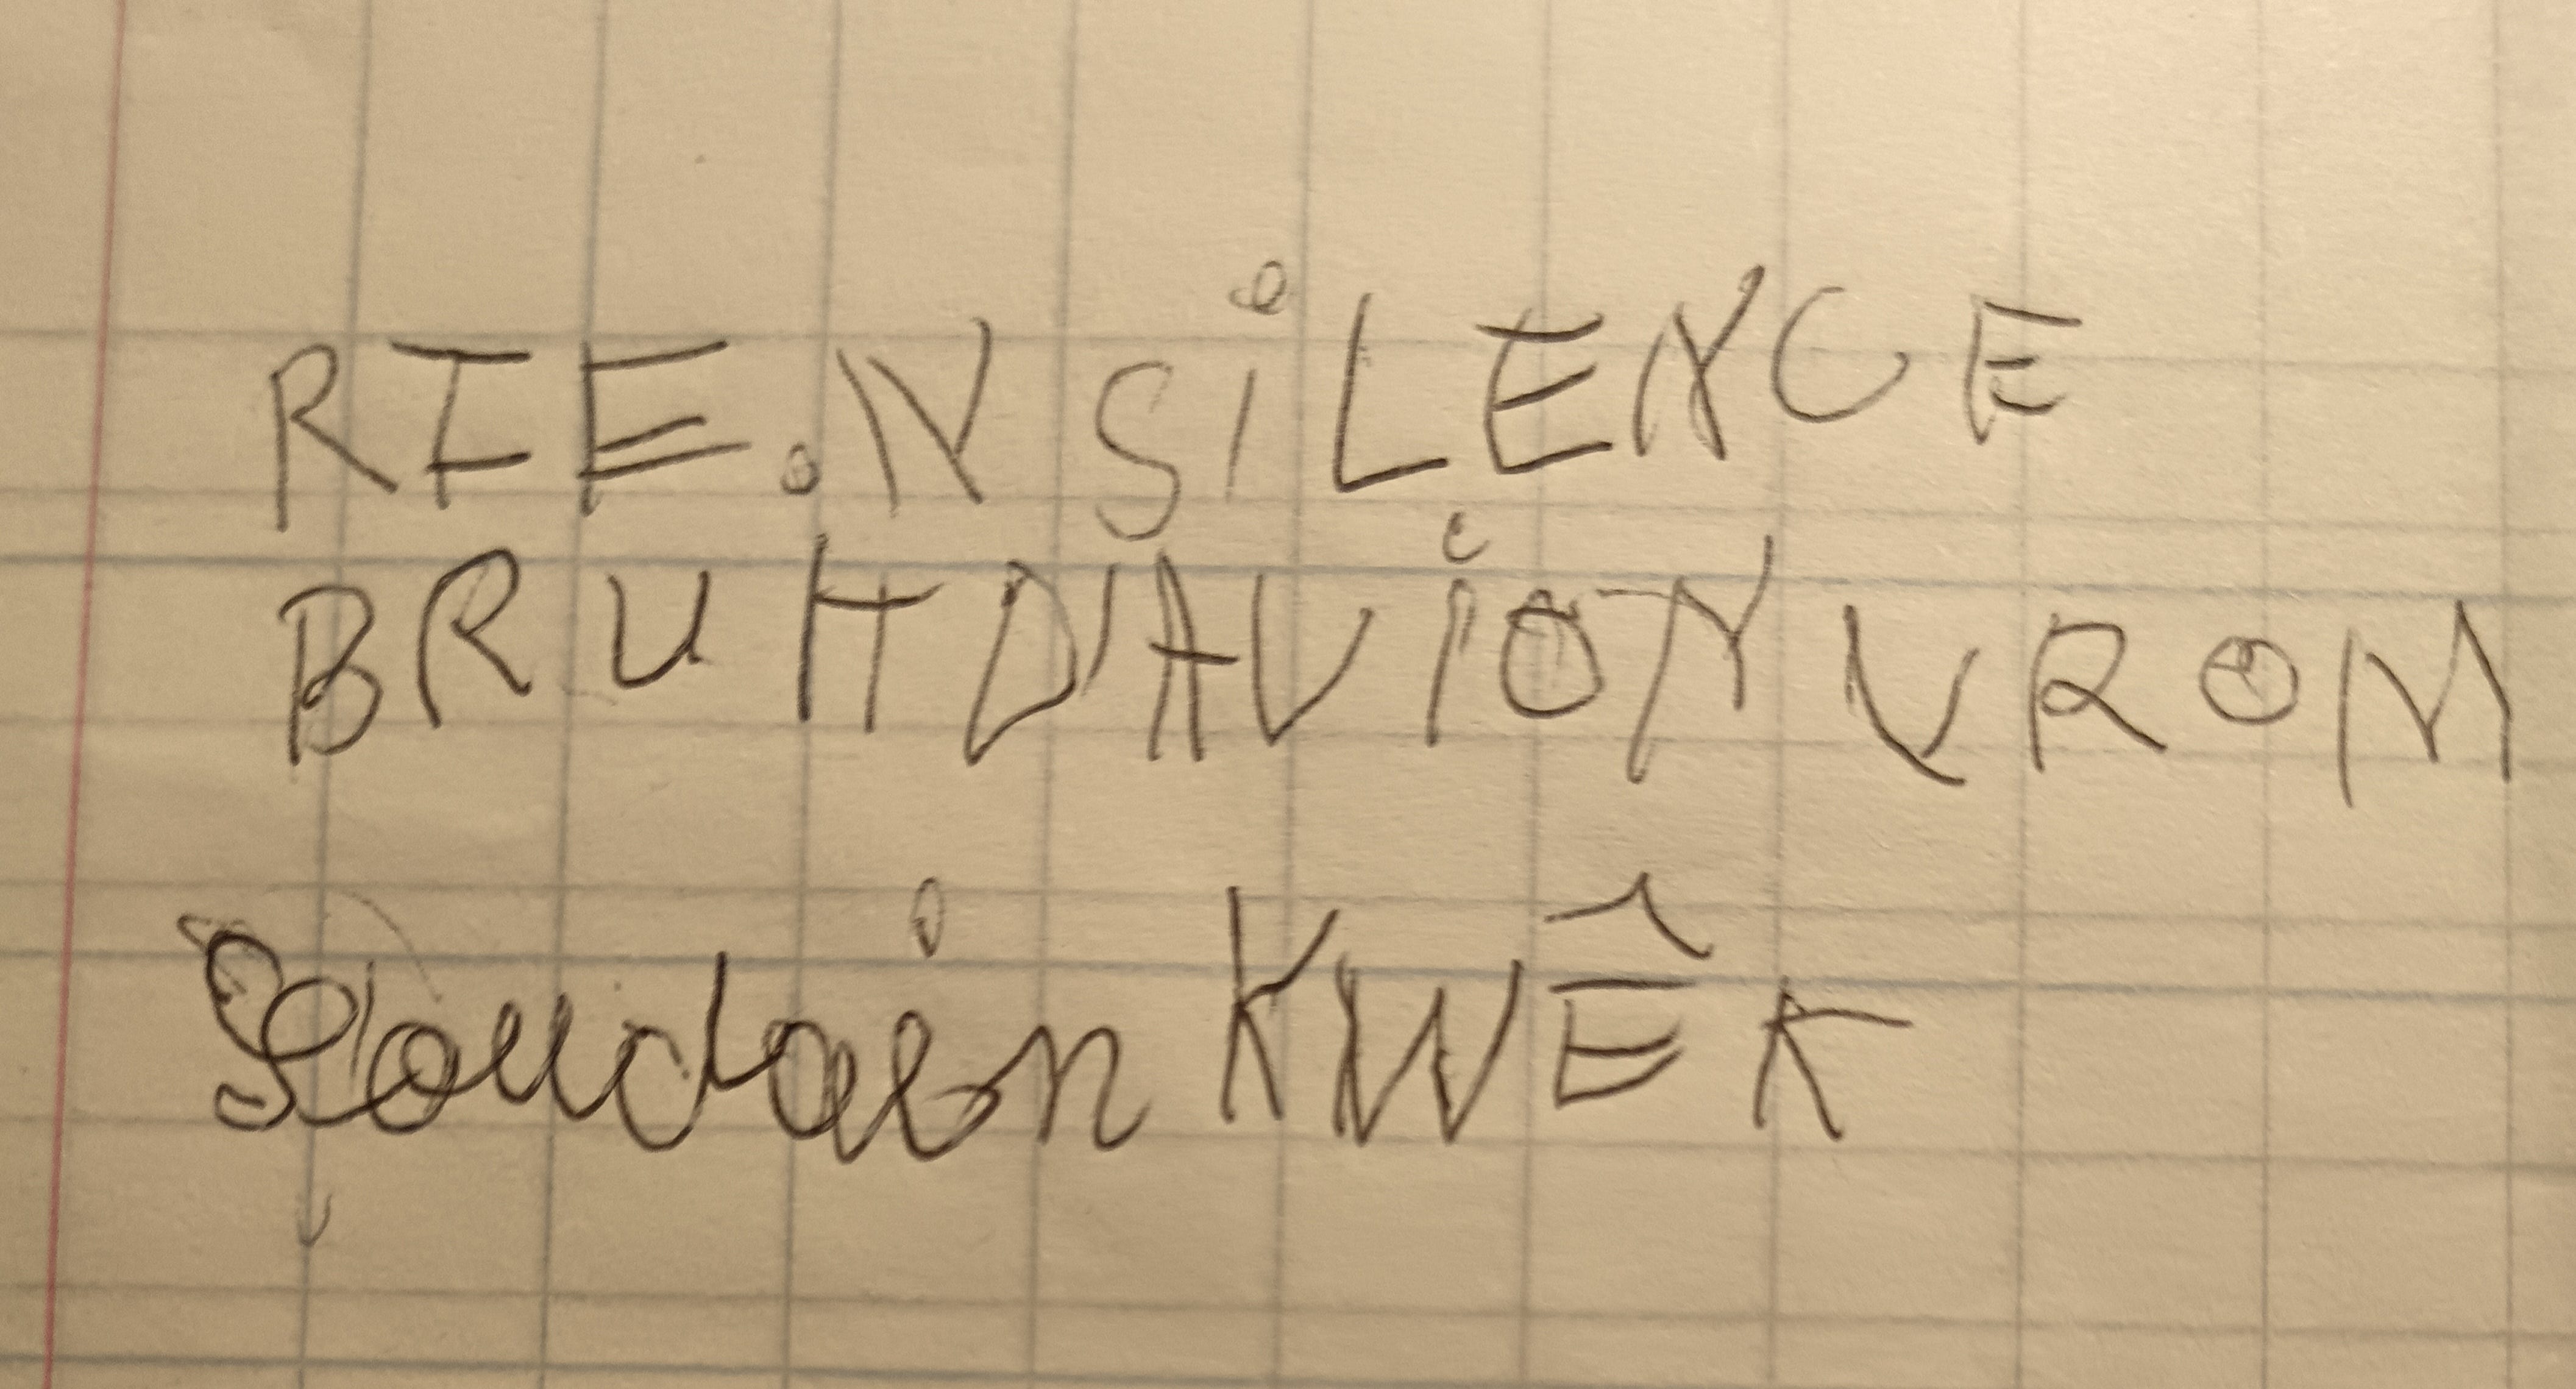 RIE.N SiLENCE
BRUIT D'AViON VROM
Soudain KWÊK